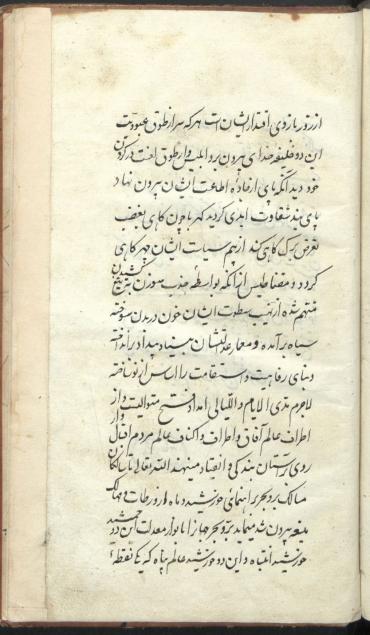 از زور بازوی اقتدار ایشان است هر که سر از طوق عبودیت
این دو خلیفه خدای بیرون برد ابلیس وار طوق لعنت در گردن
خود دید آنکه پای از جاده اطاعت ایشان بیرون نهاد
پای بند شقاوت ابدی گردید کهربا چون کاهی بغضب
تعرض برگ کاهی کند از بیم سیاست ایشان چهره کاهی
گردد و مقناطیس از آنکه بواسطه جذب سوزن بتیغ کشیدن
متهم شده از نهیب سطوت ایشان خون در بدن سوخته
سیاه برآمده و معمار عدالتشان بنیاد بیداد برانداخته
و بنای رفاهیت و استقامت را اساس از نو ساخته
لاجرم مدی الایام و اللیالی امداد فتح متوالیست و از
اطراف عالم آفاق و اطراف و اکناف عالم مردم اقبال وار
روی بر آستان بندگی و انقیاد مینهند الله تعالی تا سالکان
مسالک بر و بحر براهنمای خورشید و ماه از ورطات و مهالک
بیرون شد مینماید بر و بحر جهان را بانوار معدلت این دو جمشید
خورشید اشتباه و این دو خورشید عالم پناه که تا نقطه